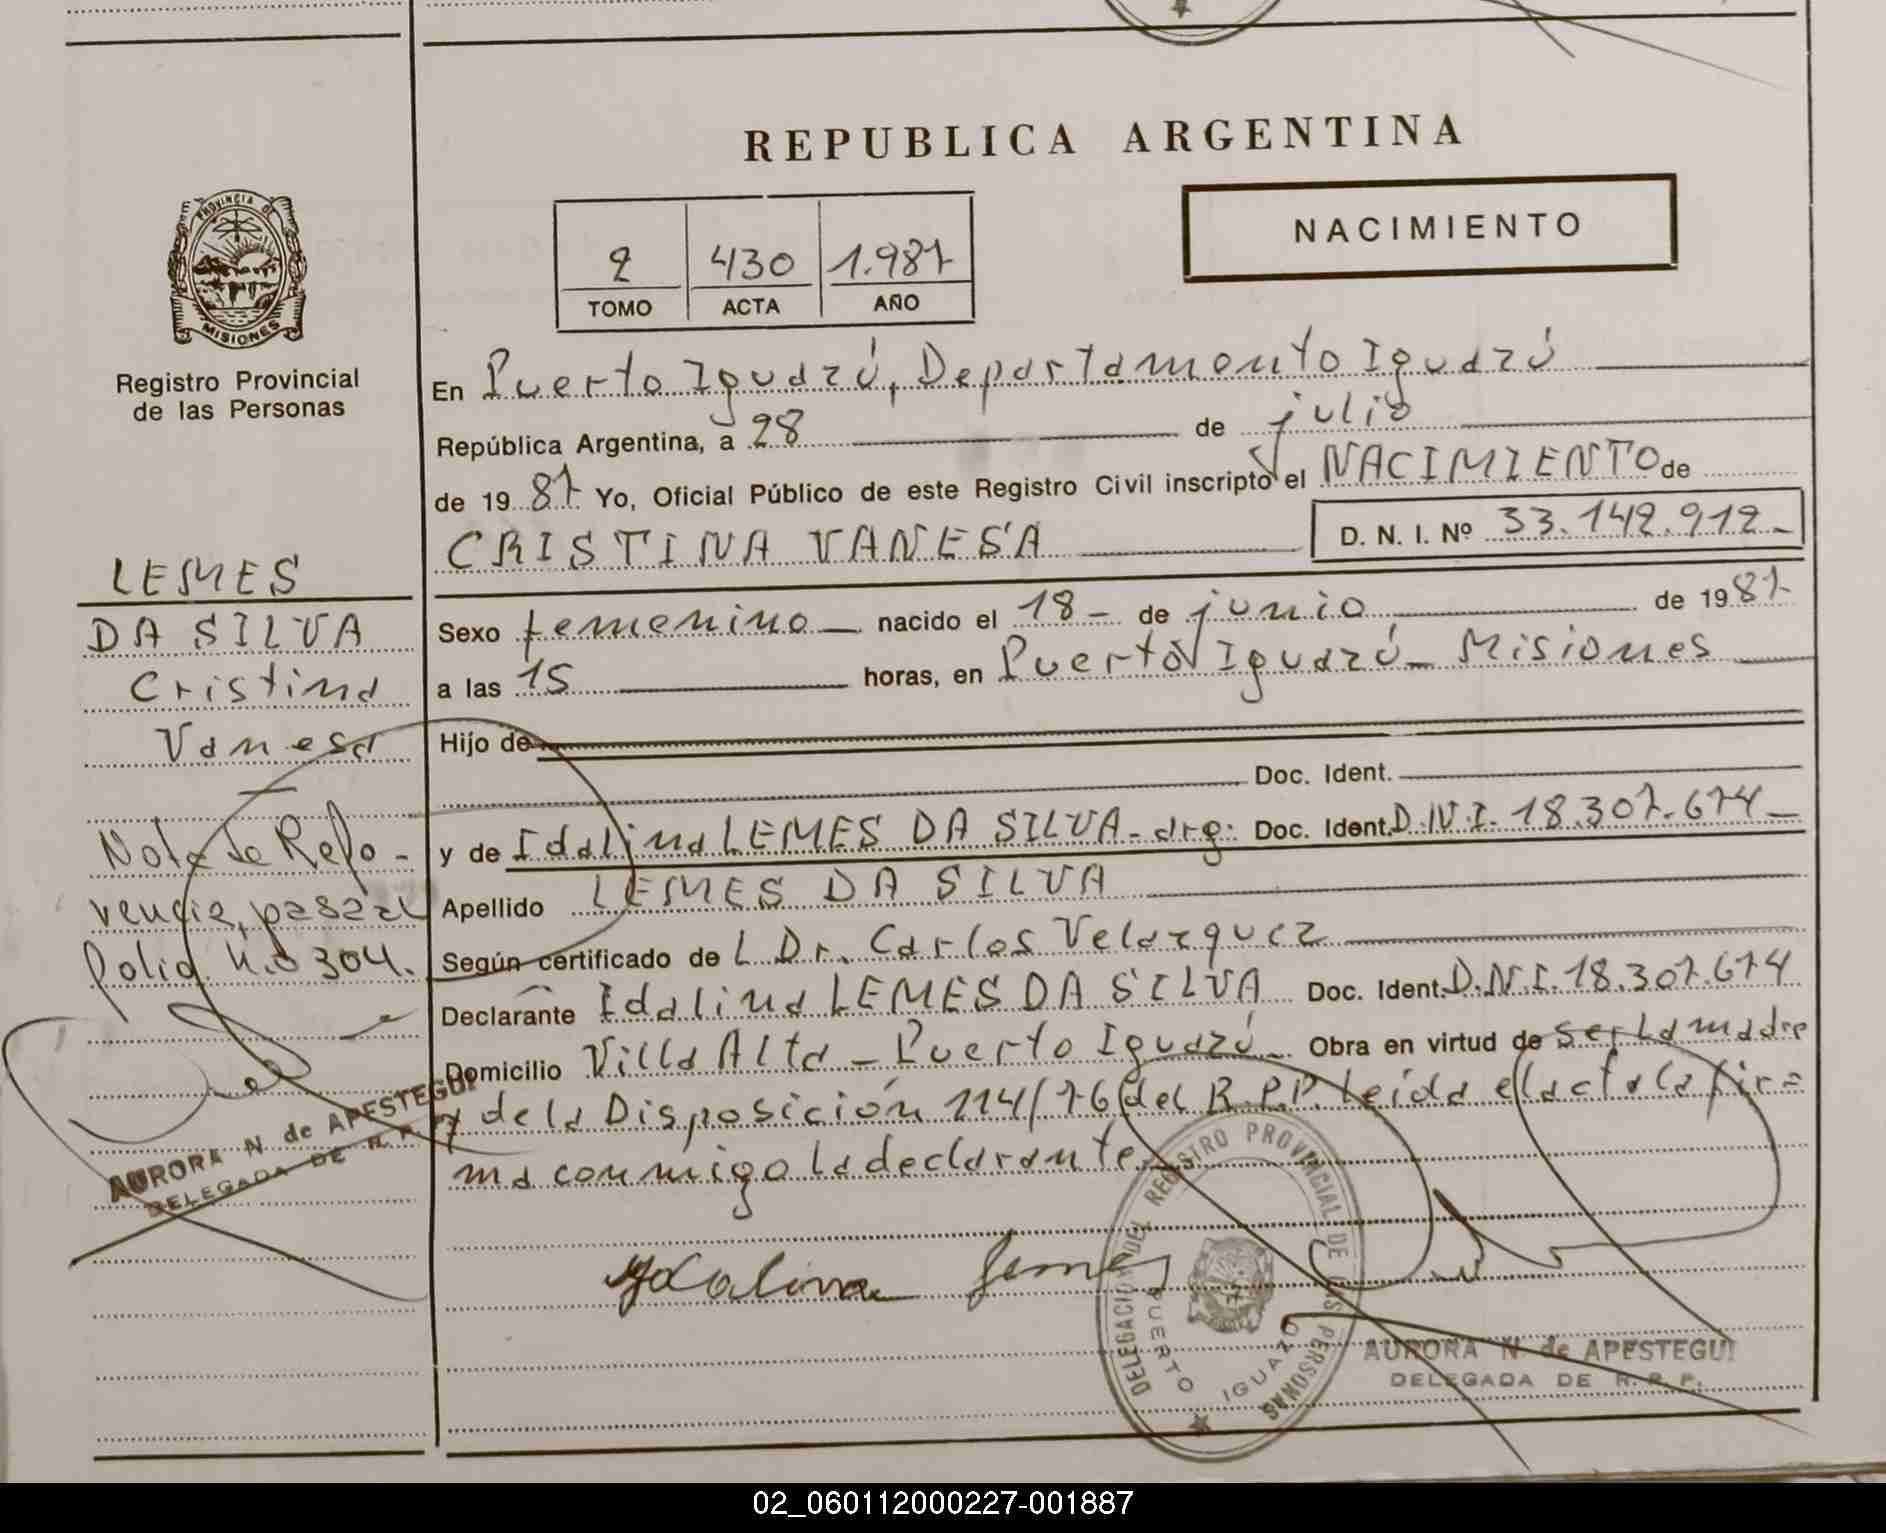 REPUBLICA ARGENTINA
NACIMIENTO
2 430 1.987
TOMO ACTA AÑO
PROVINCIA DE
MISIONES
Registro Provincial
de las Personas
LEMES
DA SILVA
Cristina
Vanesa
Nota de Refe-
rencia, pasa al
Folio N.o 304.
AURORA N de APESTEGUI
DELEGADA DE R. P. P.
En Puerto Iguazú, Departamento Iguazú
República Argentina, a 28 de julio
de 1987 Yo, Oficial Público de este Registro Civil inscripto el NACIMIENTO de
CRISTINA VANESA D. N. I. Nº 33.142.912-
Sexo femenino nacido el 18- de junio de 1987
a las 15 horas, en Puerto Iguazú- Misiones
Hijo de
Doc. Ident.
y de Idalina LEMES DA SILVA-arg: Doc. Ident. D.N.I. 18.307.674-
Apellido LEMES DA SILVA
Según certificado de L Dr. Carlos Velazquez
Declarante Idalina LEMES DA SILVA Doc. Ident. D.N.I. 18.307.674
Domicilio Villa Alta - Puerto Iguazú- Obra en virtud de ser la madre
y de la Disposición 114/76 del R.P.P. Leída el acta la fir=
ma conmigo la declarante.
Idalina Lemes
DELEGACION DEL REGISTRO PROVINCIAL DE LAS PERSONAS
PUERTO IGUAZU
AURORA N de APESTEGUI
DELEGADA DE R. P. P.
02_060112000227-001887